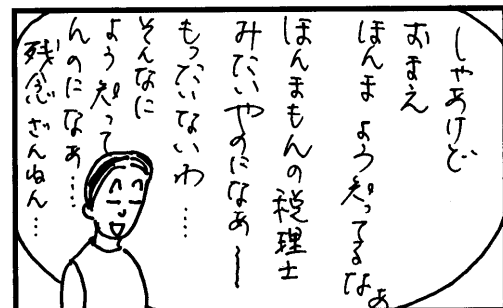 しゃあけど
おまえ
ほんま よう知ってるなぁ
ほんまもんの税理士
みたいやのになあ〜
もったいないわ……
そんなに
よう知って
んのになぁ……
残念ざんねん…